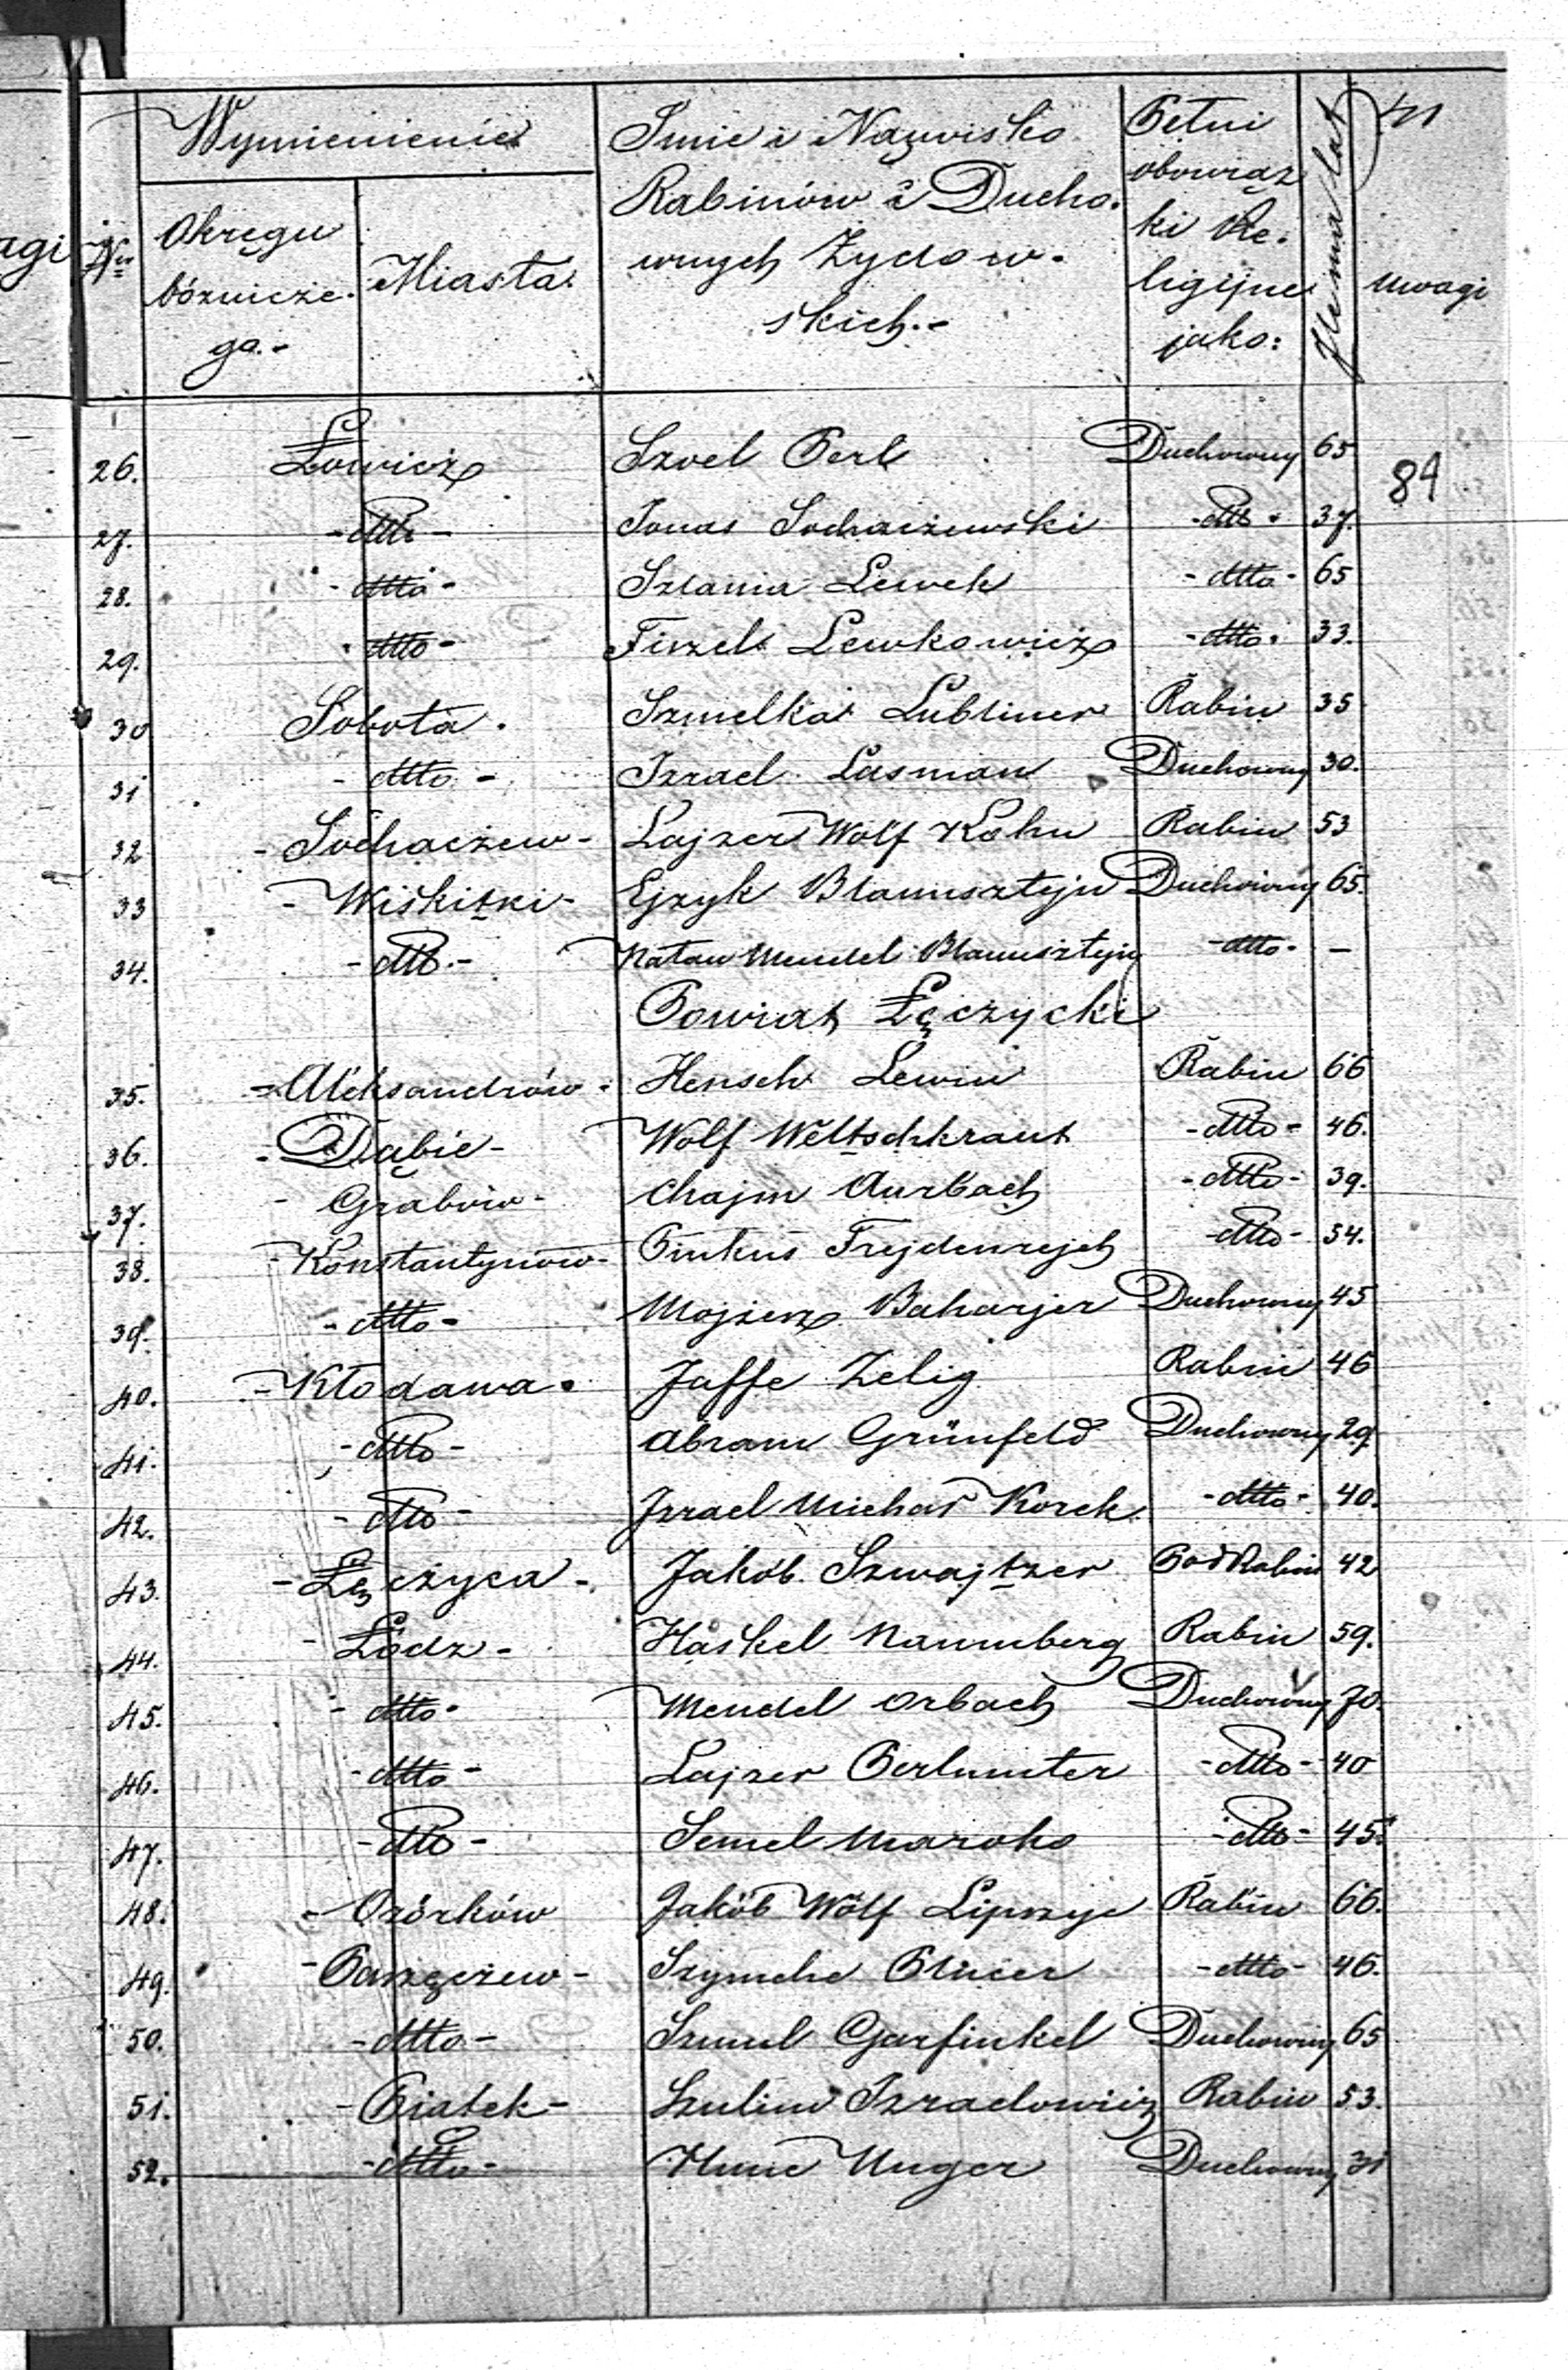 agi
Wymienienie
Nr
Okręgu
bóżnicze-
go.-
Miasta
Imie i Nazwisko
Rabinów i Ducho-
wnych Żydow-
skich.-
Pełni
obowiąz
ki Re-
ligijne
jako:
Ile ma lat
41
Uwagi
84
26. Łowicz Szoel Perl Duchowny 65
27. - dtto - Jonas Sochaczewski - dtto - 37.
28. - dtto - Szlama Lewek - dtto - 65
29. - dtto - Fiszel Lewkowicz - dtto - 33.
30 Sobota. Szmelka Lubliner Rabin 35
31 - dtto - Izrael Lasman Duchowny 30.
32 - Sochaczew - Lajzer Wolf Kohn Rabin 53
33 - Wiskitki - Ejzyk Blaumsztejn Duchowny 65.
34. - dtto - Natan Mendel Blaumsztejn - dtto - -
Powiat Łęczycki
35. - Aleksandrów - Hensch Lewin Rabin 66
36. - Dąbie - Wolf Weltschkraut - dtto - 46.
37. - Grabów - Chajm Aurbach - dtto - 39.
38. - Konstantynów - Pinkus Frejdenrejch - dtto - 34.
39. - dtto - Mojżesz Baharjer Duchowny 45
40. - Kłodawa. Jaffe Zelig Rabin 46
41. - dtto - Abram Grünfeld Duchowny 29
42. - dtto - Izrael Michał Korek - dtto - 40.
43. - Łęczyca - Jakób Szwajtzer PodRabin 42
44. - Łódz - Haskel Naumberg Rabin 59.
45. - dtto - Mendel Orbach Duchowny 70.
46. - dtto - Lajzer Perlmuter - dtto - 40
47. - dtto - Semel Maroko - dtto - 45.
48. - Ozórków Jakób Wolf Lipszyc Rabin 66.
49. - Parzęczew - Szymche - dtto - 46.
50. - dtto - Szmul Garfinkel Duchowny 65
51. - Piątek - Szulim Izraelowicz Rabin 53.
52. - dtto - Hune Unger Duchowny 31